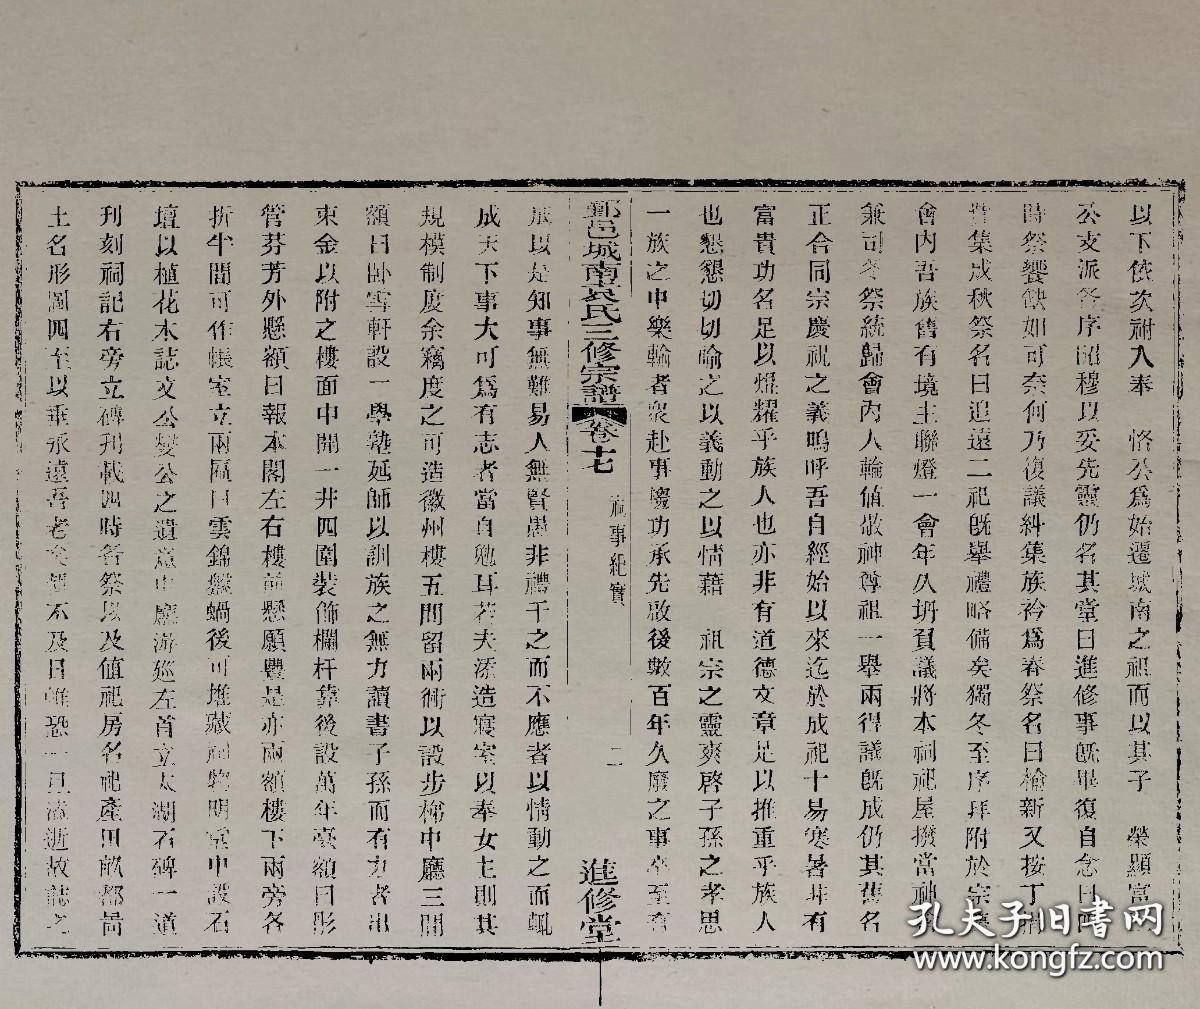 以下依次祔入奉 恪公爲始遷城南之祖而以其子 榮顯富
公支派各序昭穆以妥先靈仍名其堂曰進修事旣畢復自念曰四
時祭饗缺如可奈何乃復議糾集族衿爲春祭名曰楡新又按丁
集成秋祭名曰追遠二祀旣舉禮略備矣獨冬至序拜附於宗
會內吾族舊有境主聯燈一會年久坍頁議將本祠祀屋撥當神
兼司冬祭統歸會內人輪値敬神尊祖一舉兩得議旣成仍其舊名
正合同宗慶祝之義嗚呼吾自經始以來迄於成祀十易寒暑非有
富貴功名足以焜耀乎族人也亦非有道德文章足以推重乎族人
也懇懇切切喻之以義動之以情藉 祖宗之靈爽啓子孫之孝思
一族之中樂輸者衆赴事慶功承先啟後數百年久廢之事卒至有
鄞邑城南袁氏三修宗譜 卷十七 祠事紀實 二 進修堂
成以是知事無難易人無賢愚非禮干之而不應者以情動之而輒
成天下事大可爲有志者當自勉耳若夫添造寢室以奉女主則其
規模制度余竊度之可造徽州樓五間留兩衖以設步梯中廳三間
額曰臥雪軒設一學塾延師以訓族之無力讀書子孫而有力者出
束金以附之樓面中開一井四圍裝飾欄杆靠後設萬年臺額曰彤
管芬芳外懸額曰報本閣左右樓前懸願豐是亦兩額樓下兩旁各
折半間可作帳室立兩匾曰雲錦盤蝸後可堆藏祠物明堂中設石
壇以植花木誌文公燮公之遺意中廳游巡左首立太湖石碑一道
刊刻祠記右旁立碑刋載四時各祭以及値祀房名祀產田畝都啚
土名形圖四至以垂永遠吾老矣 不及日唯恐一旦溘逝故誌之
孔夫子旧书网
www.kongfz.com